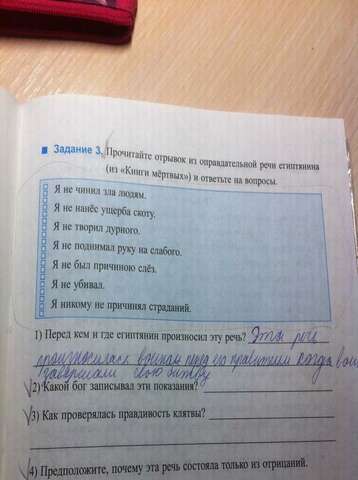 Задание 3. Прочитайте отрывок из оправдательной речи египтянина
(из «Книги мёртвых») и ответьте на вопросы.
Я не чинил зла людям.
Я не нанёс ущерба скоту.
Я не творил дурного.
Я не поднимал руку на слабого.
Я не был причиною слёз.
Я не убивал.
Я никому не причинял страданий.
1) Перед кем и где египтянин произносил эту речь? Эта речь
произносилась воином перед его правителем когда вои
завершали свою битву
2) Какой бог записывал эти показания?
3) Как проверялась правдивость клятвы?
4) Предположите, почему эта речь состояла только из отрицаний.